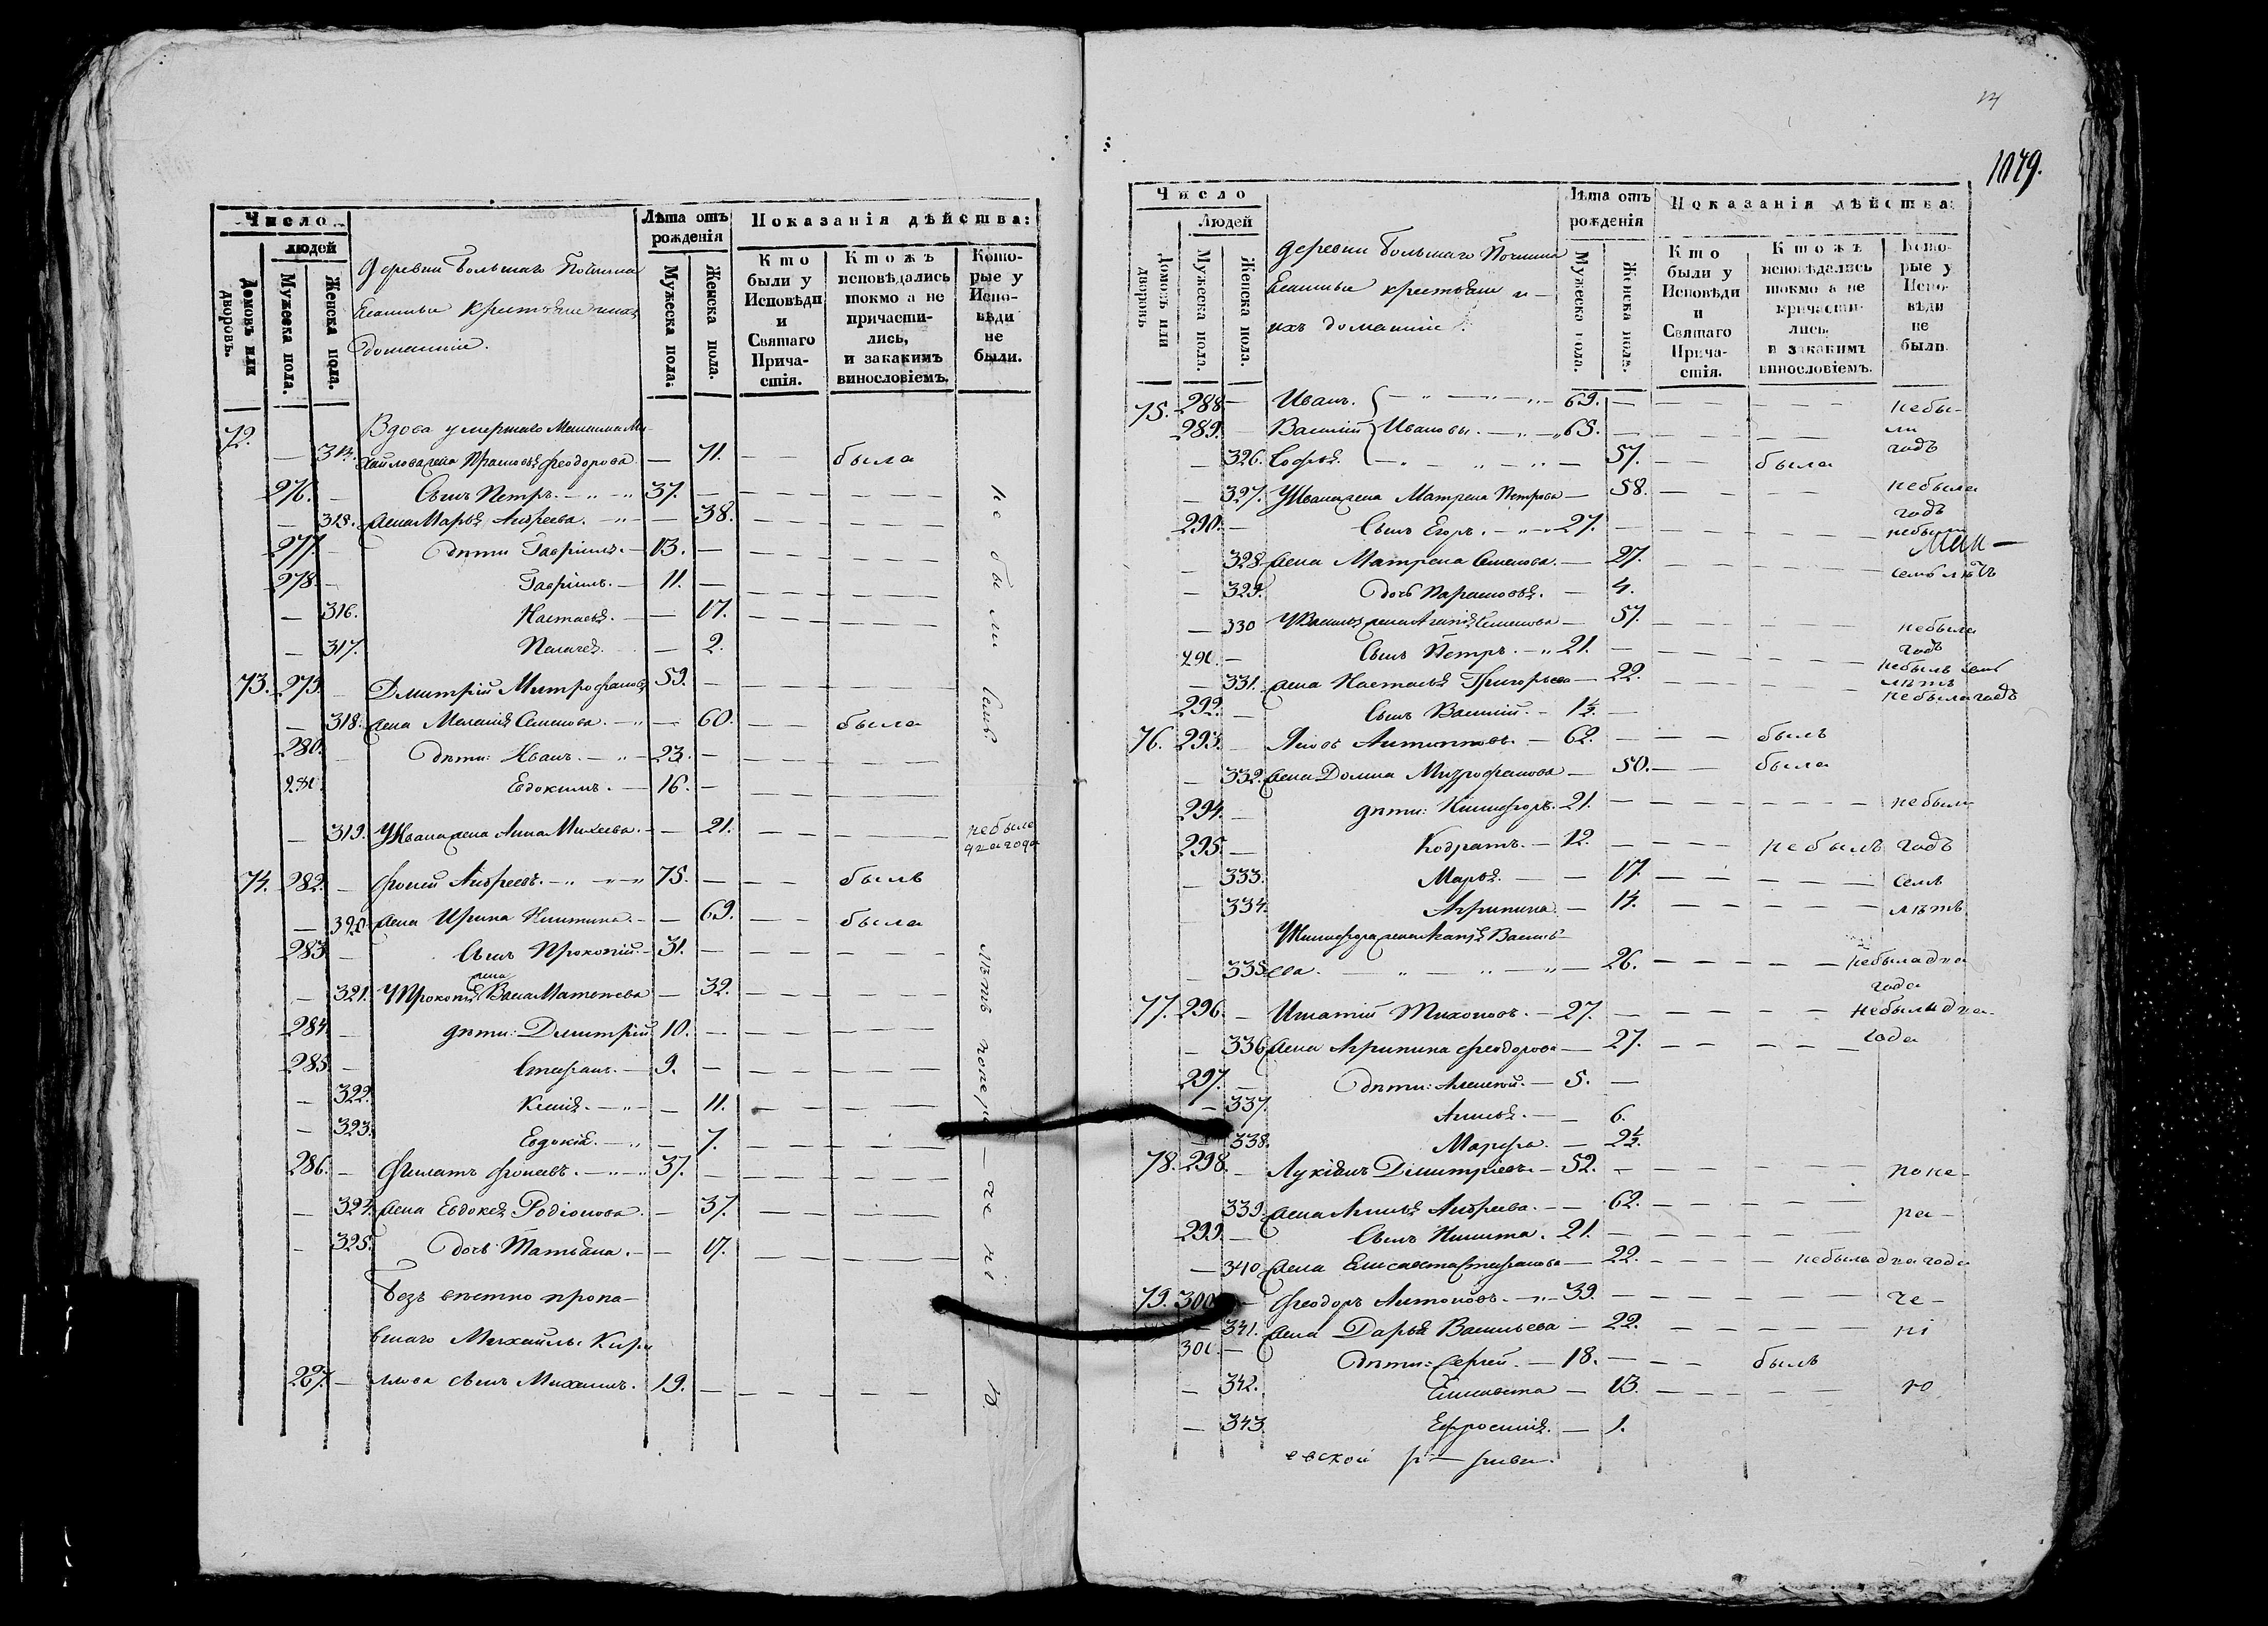 Число
людей
Домовъ или дворовъ.
Мужеска пола.
Женска пола.
деревни Большаго Почина
крестьяне и ихъ
домашніе.
Лѣта отъ рожденія
Мужеска пола.
Женска пола.
Показанія дѣйства:
Кто были у Исповѣди и Святаго Причастія.
Ктожъ исповѣдались токмо а не причастились, и закакимъ винословіемъ.
Которые у Исповѣди не были.
72. Вдова умершаго Ми-
314. хайлова жена Прасковья Феодорова — 71. — — была
276. — Сынъ Петръ. 37. —
315. жена Марья Андреева. — 38.
277. — дѣти Гавріилъ. — 13. —
278. — Гавріилъ. — 11. —
— 316. Настасья. — 17.
— 317. Пелагея. — 2.
73. 279. — Дмитрій Митрофановъ 59. —
— 318. жена Меланія Семенова. — 60. — — была
280. — дѣти: Иванъ. — 23. —
281. Евдокимъ. — 16. —
— 319. У Ивана жена Анна Михеева. — 21. — небыла
два года
74. 282. — Фокей Андреевъ. — 75. — — былъ
— 320. жена Ирина Никитина. — 69. — — была
283. — Сынъ Прокопій. — 31. —
жена
— 321. У Прокопія Матвеева — 32.
284. — дѣти: Дмитрій. 10. —
285. — Стефанъ. — 9. —
— 322. Ксенія. — 11.
— 323. Евдокія. — 7.
286. — Филатъ Фокеевъ. — 37. —
— 324. жена Евдокея Родіонова. — 37.
— 325. дочь Татьяна. — 17.
Безъ вѣстно пропа-
вшаго Михайлы Кири
287. — ллова сынъ Михаилъ. 19. —
не были семь лѣтъ понера — че — ні — ю.
1079.
Число
Людей
Домовъ или дворовъ
Мужеска пола.
Женска пола.
деревни Большаго Почина
крестьяне и —
ихъ домашніе.
Лѣта отъ рожденія
Мужеска пола.
Женска пола.
Показанія дѣйства:
Кто были у Исповѣди и Святаго Причастія.
Ктожъ исповѣдались токмо а не причастились, и закакимъ винословіемъ.
Которые у Исповѣди не были.
75. 288. — Иванъ. 69. — небы-
289. — Василій Ивановы. — 65. — ли
— 326. Софья. — 57. — — была годъ
— 327. У Ивана жена Матрена Петрова — 58. небыла
годъ
290. — Сынъ Егоръ. — 27. — небылъ
— 328. жена Матрена Семенова. — 27. семь лѣтъ
— 329. дочь Парасковья. — 4.
— 330 У Василья жена Агапія Семенова — 57. небыла
годъ
291. — Сынъ Петръ. — 21. — небылъ семь
лѣтъ
— 331. жена Настасья Григорьева — 22. небыла годъ
292. — Сынъ Василій. — 1½. —
76. 293. — Яковъ Антиповъ. — 62. — — былъ
— 332. жена Домна Митрофанова — 50. — — была
294. — дѣти: Никифоръ. 21. — небыли
295. — Кодратъ. — 12. — небылъ годъ
— 333. Марья. — 17. семь
— 334. Агрипина. — 14. лѣтъ
У Никифора жена Агапія Василь-
— 335. ева. — 26. — небыла два
года
77. 296. — Игнатій Тихоновъ. — 27. — небыли два
— 336. жена Агрипина Феодорова — 27. года
297. — дѣти: Алексѣй. — 5. —
— 337. — 6.
338. Марфа. — 2½.
78. 298. — Лукіянъ Дмитріевъ. — 52. — поне-
339. жена Андреева. — 62. ра-
299. — Сынъ Никита. 21. —
— 340 жена Елисавета Стефанова — 22. — небыла два года
79. 300. — Феодоръ Антоновъ. — 39. — че-
— 341. жена Дарья Васильева — 22. ні
301. — дѣти: Сергей. — 18. — — былъ
— 342. Елисавета — 13. ю
— 343 Ефросинія. — 1.